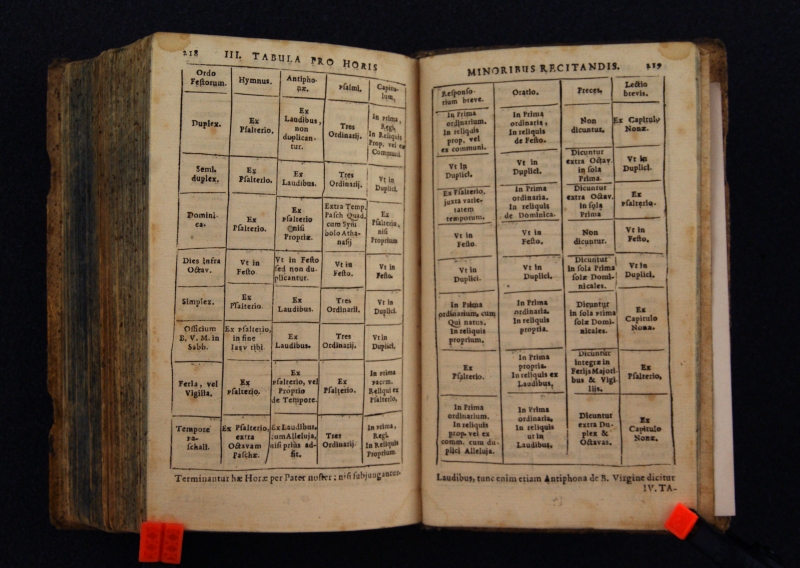 218 III. TABULA PRO HORIS
Ordo
Festorum.
Hymnus.
Antipho-
næ.
Psalmi.
Capitu-
lum,
Duplex.
Ex
Psalterio.
Ex
Laudibus,
non
duplican-
tur.
Tres
Ordinarij.
In Prima,
Regi.
In Reliquis
Prop. vel ex
Communi.
Semi-
duplex.
Ex
Psalterio.
Ex
Laudibus.
Tres
Ordinarij.
Vt in
Duplici.
Domini-
ca.
Ex
Psalterio.
Ex
Psalterio
nisi
Propriæ.
Extra Temp.
Pasch Quad.
cum Sym
bolo Atha-
nasij
Ex
Psalterio,
nisi
Proprium
Dies infra
Octav.
Vt in
Festo
Vt in Festo
sed non du-
plicantur.
Vt in
Festo.
Vt in
Festo.
Simplex.
Ex
Psalterio.
Ex
Laudibus.
Tres
Ordinarij.
Vt in
Duplici.
Officium
B. V. M. in
Sabb.
Ex Psalterio,
in fine
Iesv tibi.
Ex
Laudibus.
Tres
Ordinarij.
Vt in
Duplici.
Feria, vel
Vigilia.
Ex
Psalterio.
Ex
Psalterio, vel
Proprio
de Tempore.
Ex
Psalterio.
In Prima
Reliqui ex
Psalterio.
Tempore
Pa-
schali.
Ex Psalterio,
extra
Octavam
Paschæ.
Ex Laudibus,
cum Alleluja,
nisi prius ad-
sit.
Tres
Ordinarij.
In Prima,
Regi.
In Reliquis
Proprium
Terminantur hæ Horæ per Pater noster; nisi subjungantur
MINORIBUS RECITANDIS. 219
Responso-
rium breve.
Oratio.
Preces.
Lectio
brevis.
In Prima
ordinarium.
In reliquis
prop. vel
ex communi.
In Prima
ordinaria,
In reliquis
de Festo.
Non
dicuntur.
Ex Capitulo
Nonæ.
Vt in
Duplici.
Vt in
Duplici.
Dicuntur
extra Octav.
in sola
Prima.
Vt in
Duplici.
Ex Psalterio,
juxta varie-
tatem
temporum.
In Prima
ordinaria.
In reliquis
de Dominica.
Dicuntur
extra Octav.
in sola
Prima
Ex
Psalterio.
Vt in
Festo.
Vt in
Festo.
Non
dicuntur.
Vt in
Festo,
Vt in
Duplici.
Vt in
Duplici.
Dicuntur
in sola Prima
solæ Domi-
nicales.
Vt in
Duplici.
In Prima
ordinarium, cum
Qui natus.
In reliquis
proprium.
In Prima
ordinaria.
In reliquis
propria.
Dicuntur
in sola Prima
solæ Domi-
nicales.
Ex
Capitulo
Nonæ.
Ex
Psalterio.
In Prima
propria.
In reliquis ex
Laudibus,
Dicuntur
integræ in
Ferijs Majori-
bus & Vigi-
lijs.
Ex
Psalterio,
In Prima
ordinarium.
In reliquis
prop. vel ex
comm. cum du-
plici Alleluja.
In Prima
ordinaria,
In reliquis
ut in
Laudibus,
Dicuntur
extra Du-
plex &
Octavas.
Ex
Capitulo
Nonæ.
Laudibus, tunc enim etiam Antiphona de B. Virgine dicitur
IV. TA-